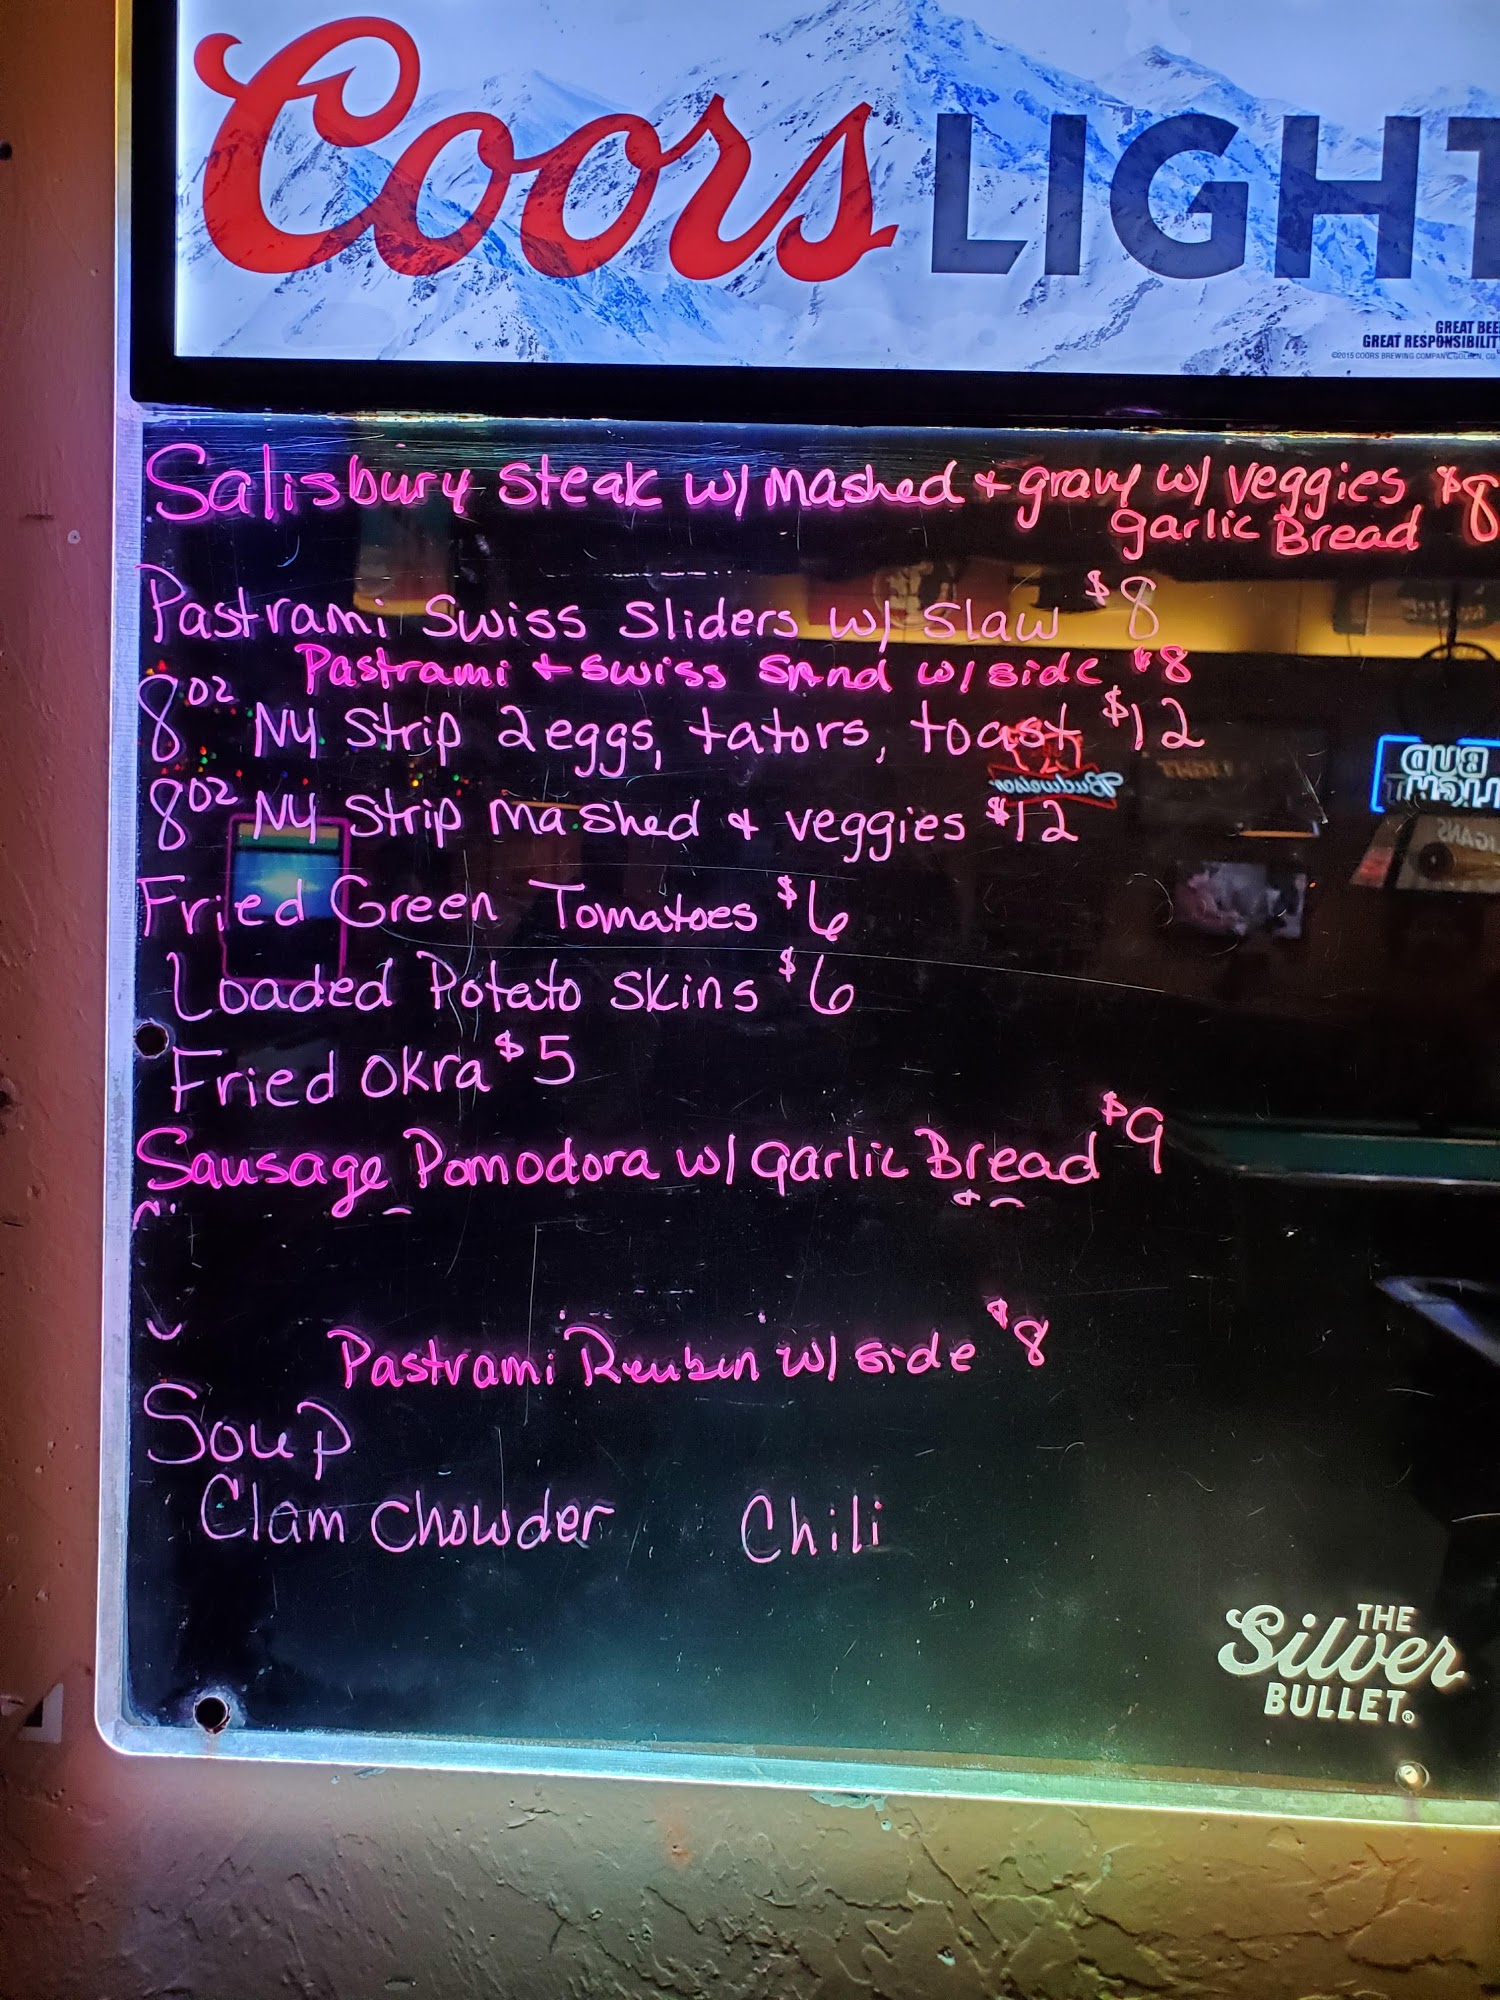 Coors LIGHT
GREAT BEE
GREAT RESPONSIBILIT
©2015 COORS BREWING COMPANY, GOLDEN, CO
Salisbury Steak w/ Mashed + gravy w/ veggies $8
garlic Bread
Pastrami Swiss Sliders w/ Slaw $8
Pastrami + Swiss Sand w/ side $8
8oz NY Strip 2 eggs, tators, toast $12
8oz NY Strip Mashed & veggies $12
Fried Green Tomatoes $6
Loaded Potato Skins $6
Fried Okra $5
Sausage Pomodora w/ garlic Bread $9
Pastrami Reuben w/ side $8
Soup
Clam Chowder Chili
THE
Silver
BULLET®
Budweiser
BUD
LIGHT